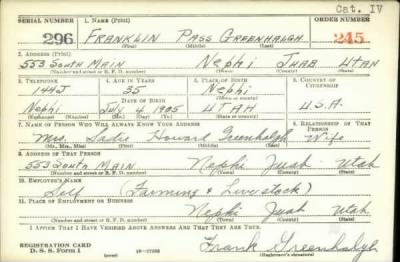 Cat. IV
SERIAL NUMBER 1. NAME (Print) ORDER NUMBER
296 FRANKLIN PASS GREENHALGH 245
(First) (Middle) (Last)
2. ADDRESS (Print)
553 SOUTH MAIN NEPHI JUAB UTAH
(Number and street or R. F. D. number) (Town) (County) (State)
3. TELEPHONE 4. AGE IN YEARS 5. PLACE OF BIRTH 6. COUNTRY OF CITIZENSHIP
144J 35 Nephi
DATE OF BIRTH
Nephi July 1905 UTAH U.S.A.
(Exchange) (Number) (Mo.) (Day) (Yr.) (State or country)
7. NAME OF PERSON WHO WILL ALWAYS KNOW YOUR ADDRESS 8. RELATIONSHIP OF THAT PERSON
Mrs. Sadie Howard Greenhalgh Wife
(Mr., Mrs., Miss) (First) (Middle) (Last)
9. ADDRESS OF THAT PERSON
553 South Main Nephi Juab Utah
(Number and street or R. F. D. number) (Town) (County) (State)
10. EMPLOYER'S NAME
Self (Farming & Livestock)
11. PLACE OF EMPLOYMENT OR BUSINESS
Nephi Juab Utah
(Number and street or R. F. D. number) (Town) (County) (State)
I AFFIRM THAT I HAVE VERIFIED ABOVE ANSWERS AND THAT THEY ARE TRUE.
REGISTRATION CARD
D. S. S. Form 1 Frank Greenhalgh
(Registrant's signature)